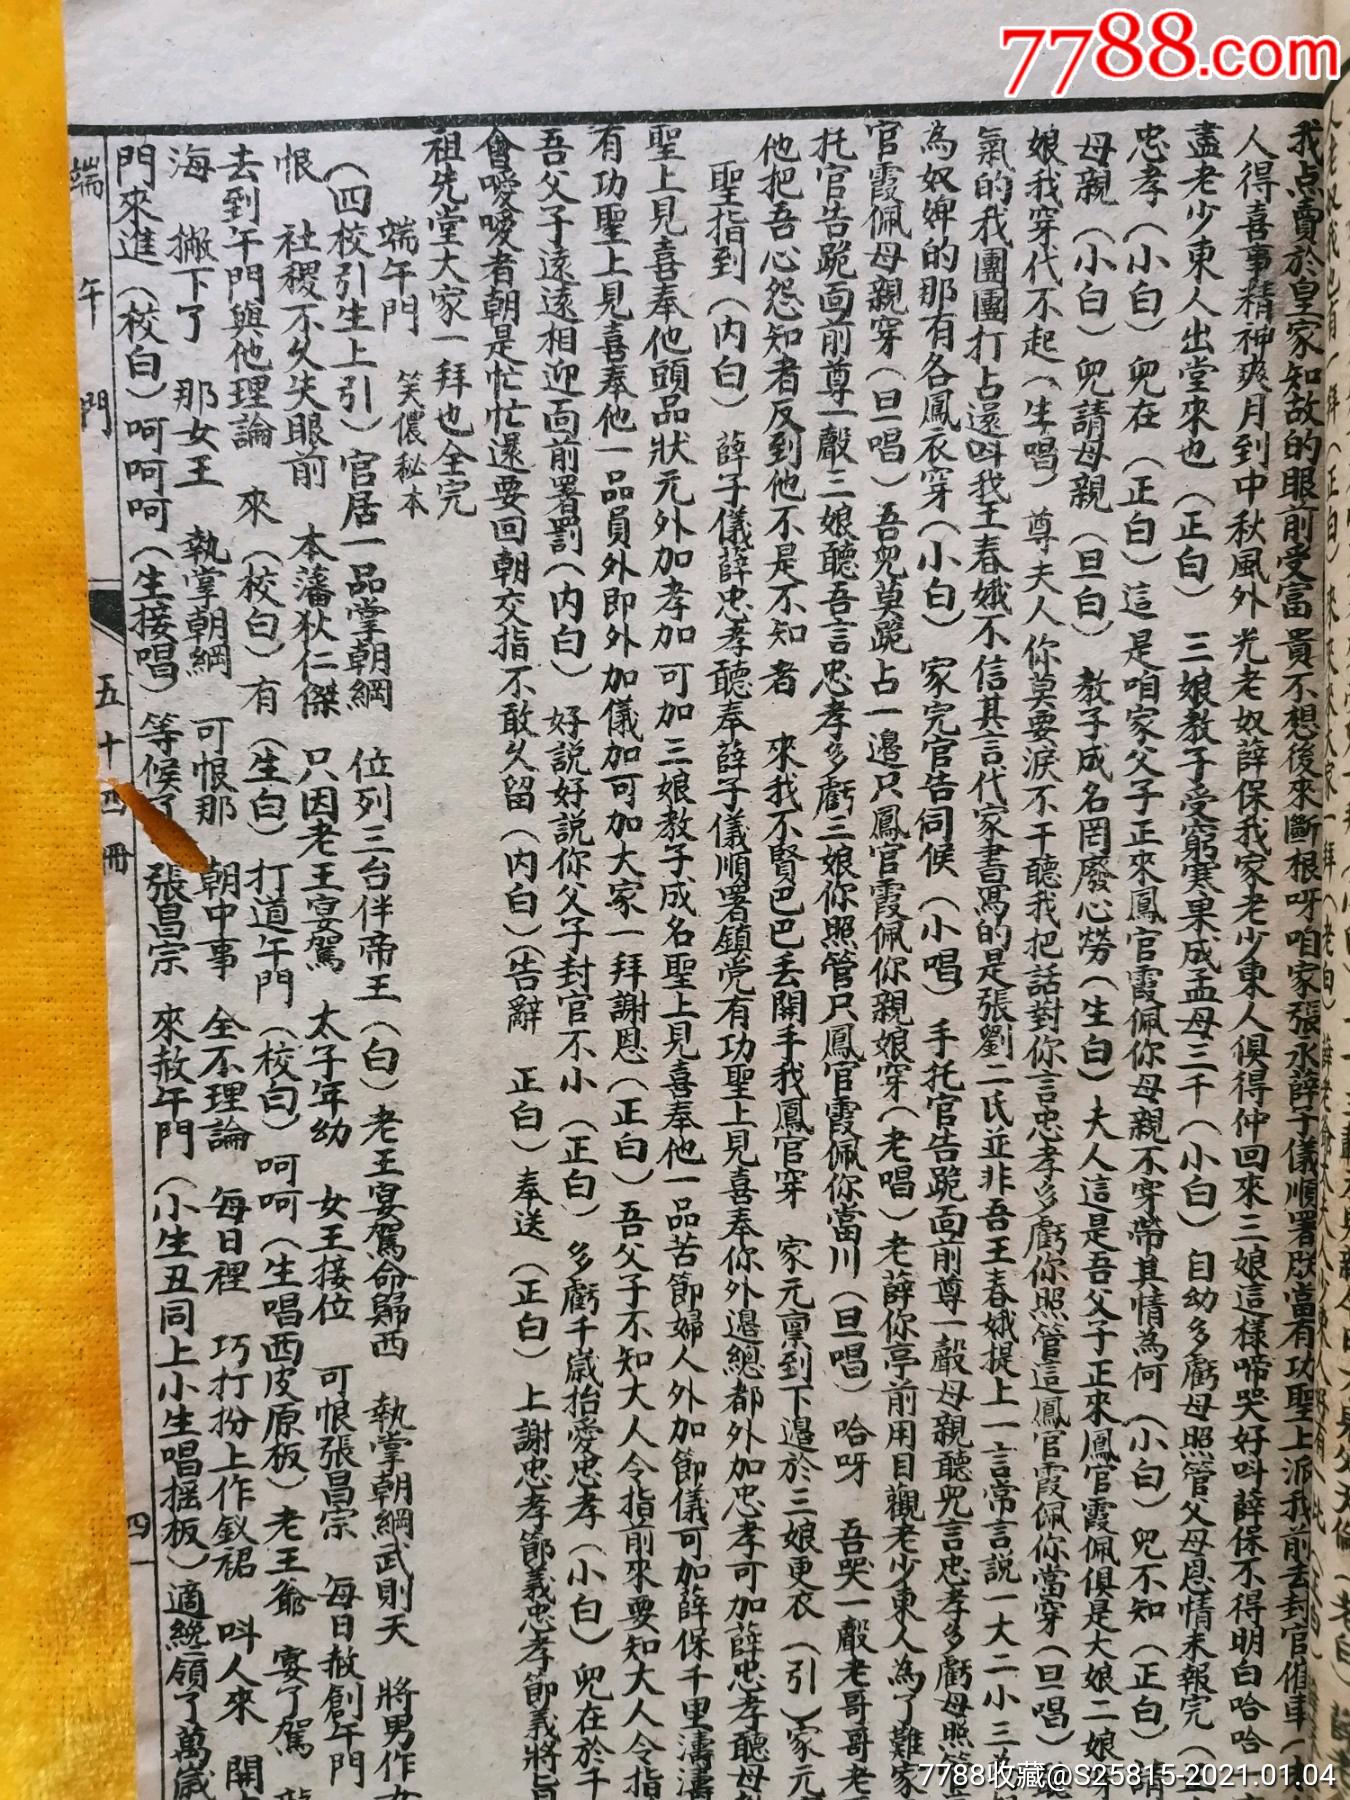 7788.com
我点賣於皇家知故的眼前受富貴不想後來斷根呀咱家張永薛子儀順署朕當有功聖上派我前去封官催車
人得喜事精神爽月到中秋風外光老奴薛保我家老少東人俱得仲回來三娘這樣啼哭好叫薛保不得明白哈哈
盡老少東人出堂來也（正白）三娘教子受窮寒果成孟母三千（小白）自幼多虧母照管父母恩情未報完
忠孝（小白）兒在（正白）這是咱家父子正來鳳官霞佩你母親不穿帶其情為何（小白）兒不知（正白）請
母親（小白）兒請母親（旦白）教子成名罔廢心勞（生白）夫人這是吾父子正來鳳官霞佩俱是大娘二娘
娘我穿代不起（生唱）尊夫人你莫要淚不干聽我把話對你言忠孝多虧你照管這鳳官霞佩你當穿（旦唱）
氣的我團團打占還叫我王春娥不信其言代家書寫的是張劉二氏並非吾王春娥提上一言常言説一大二小三
為奴婢的那有各鳳衣穿（小白）家完官告伺候（小唱）手托官告跪面前尊一聲母親聽兒言忠孝多虧母照
官霞佩母親穿（旦唱）吾兒莫跪占一邉只鳳官霞佩你親娘穿（老唱）老薛你亭前用目觀老少東人為了難家
托官告跪面前尊一聲三娘聽吾言忠孝多虧三娘你照管只鳳官霞佩你當川（旦唱）哈呀 吾哭一聲老哥哥老
他把吾心怨知者反到他不是不知者 來我不賢巴巴丢開手我鳳官穿 家元稟到下邉於三娘更衣（引）家元
聖指到（内白）薛子儀薛忠孝聽奉薛子儀順署鎮党有功聖上見喜奉你外邉總都外加忠孝可加薛忠孝聽母
聖上見喜奉他頭品狀元外加孝加可加三娘教子成名聖上見喜奉他一品苦節婦人外加節儀可加薛保千里濤濤
有功聖上見喜奉他一品員外即外加儀加可加大家一拜謝恩（正白）吾父子不知大人令指前來要知大人令指
吾父子遠遠相迎面前署罰（内白）好説好説你父子封官不小（正白）多虧千嵗抬愛忠孝（小白）兒在於千
會噯噯者朝是忙忙還要回朝交指不敢久留（内白）（告辭 正白）奉送（正白）上謝忠孝節義忠孝節義將旨
祖先堂大家一拜也全完
端午門 笑儂秘本
（四校引生上引）官居一品掌朝綱 位列三台伴帝王（白）老王宴駕命歸西 執掌朝綱武則天 將男作女
恨 社稷不久失眼前 本藩狄仁傑 只因老王宴駕 太子年幼 女王接位 可恨張昌宗 每日赦創午門
去到午門與他理論 來（校白）有（生白）打道午門（校白）呵呵（生唱西皮原板）老王爺 宴了駕 龍
海 撇下了 那女王 執掌朝綱 可恨那 朝中事 全不理論 每日裡 巧打扮上作釵裙 叫人來 開
門來進（校白）呵呵呵（生接唱）等候了 張昌宗 來赦午門（小生丑同上小生唱摇板）適纔領了萬嵗
端午門 五十四冊 四一
7788收藏@S25815-2021.01.04